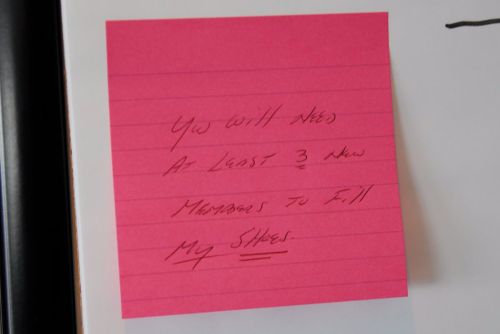 You will need
At least 3 new
members to fill
my shoes.